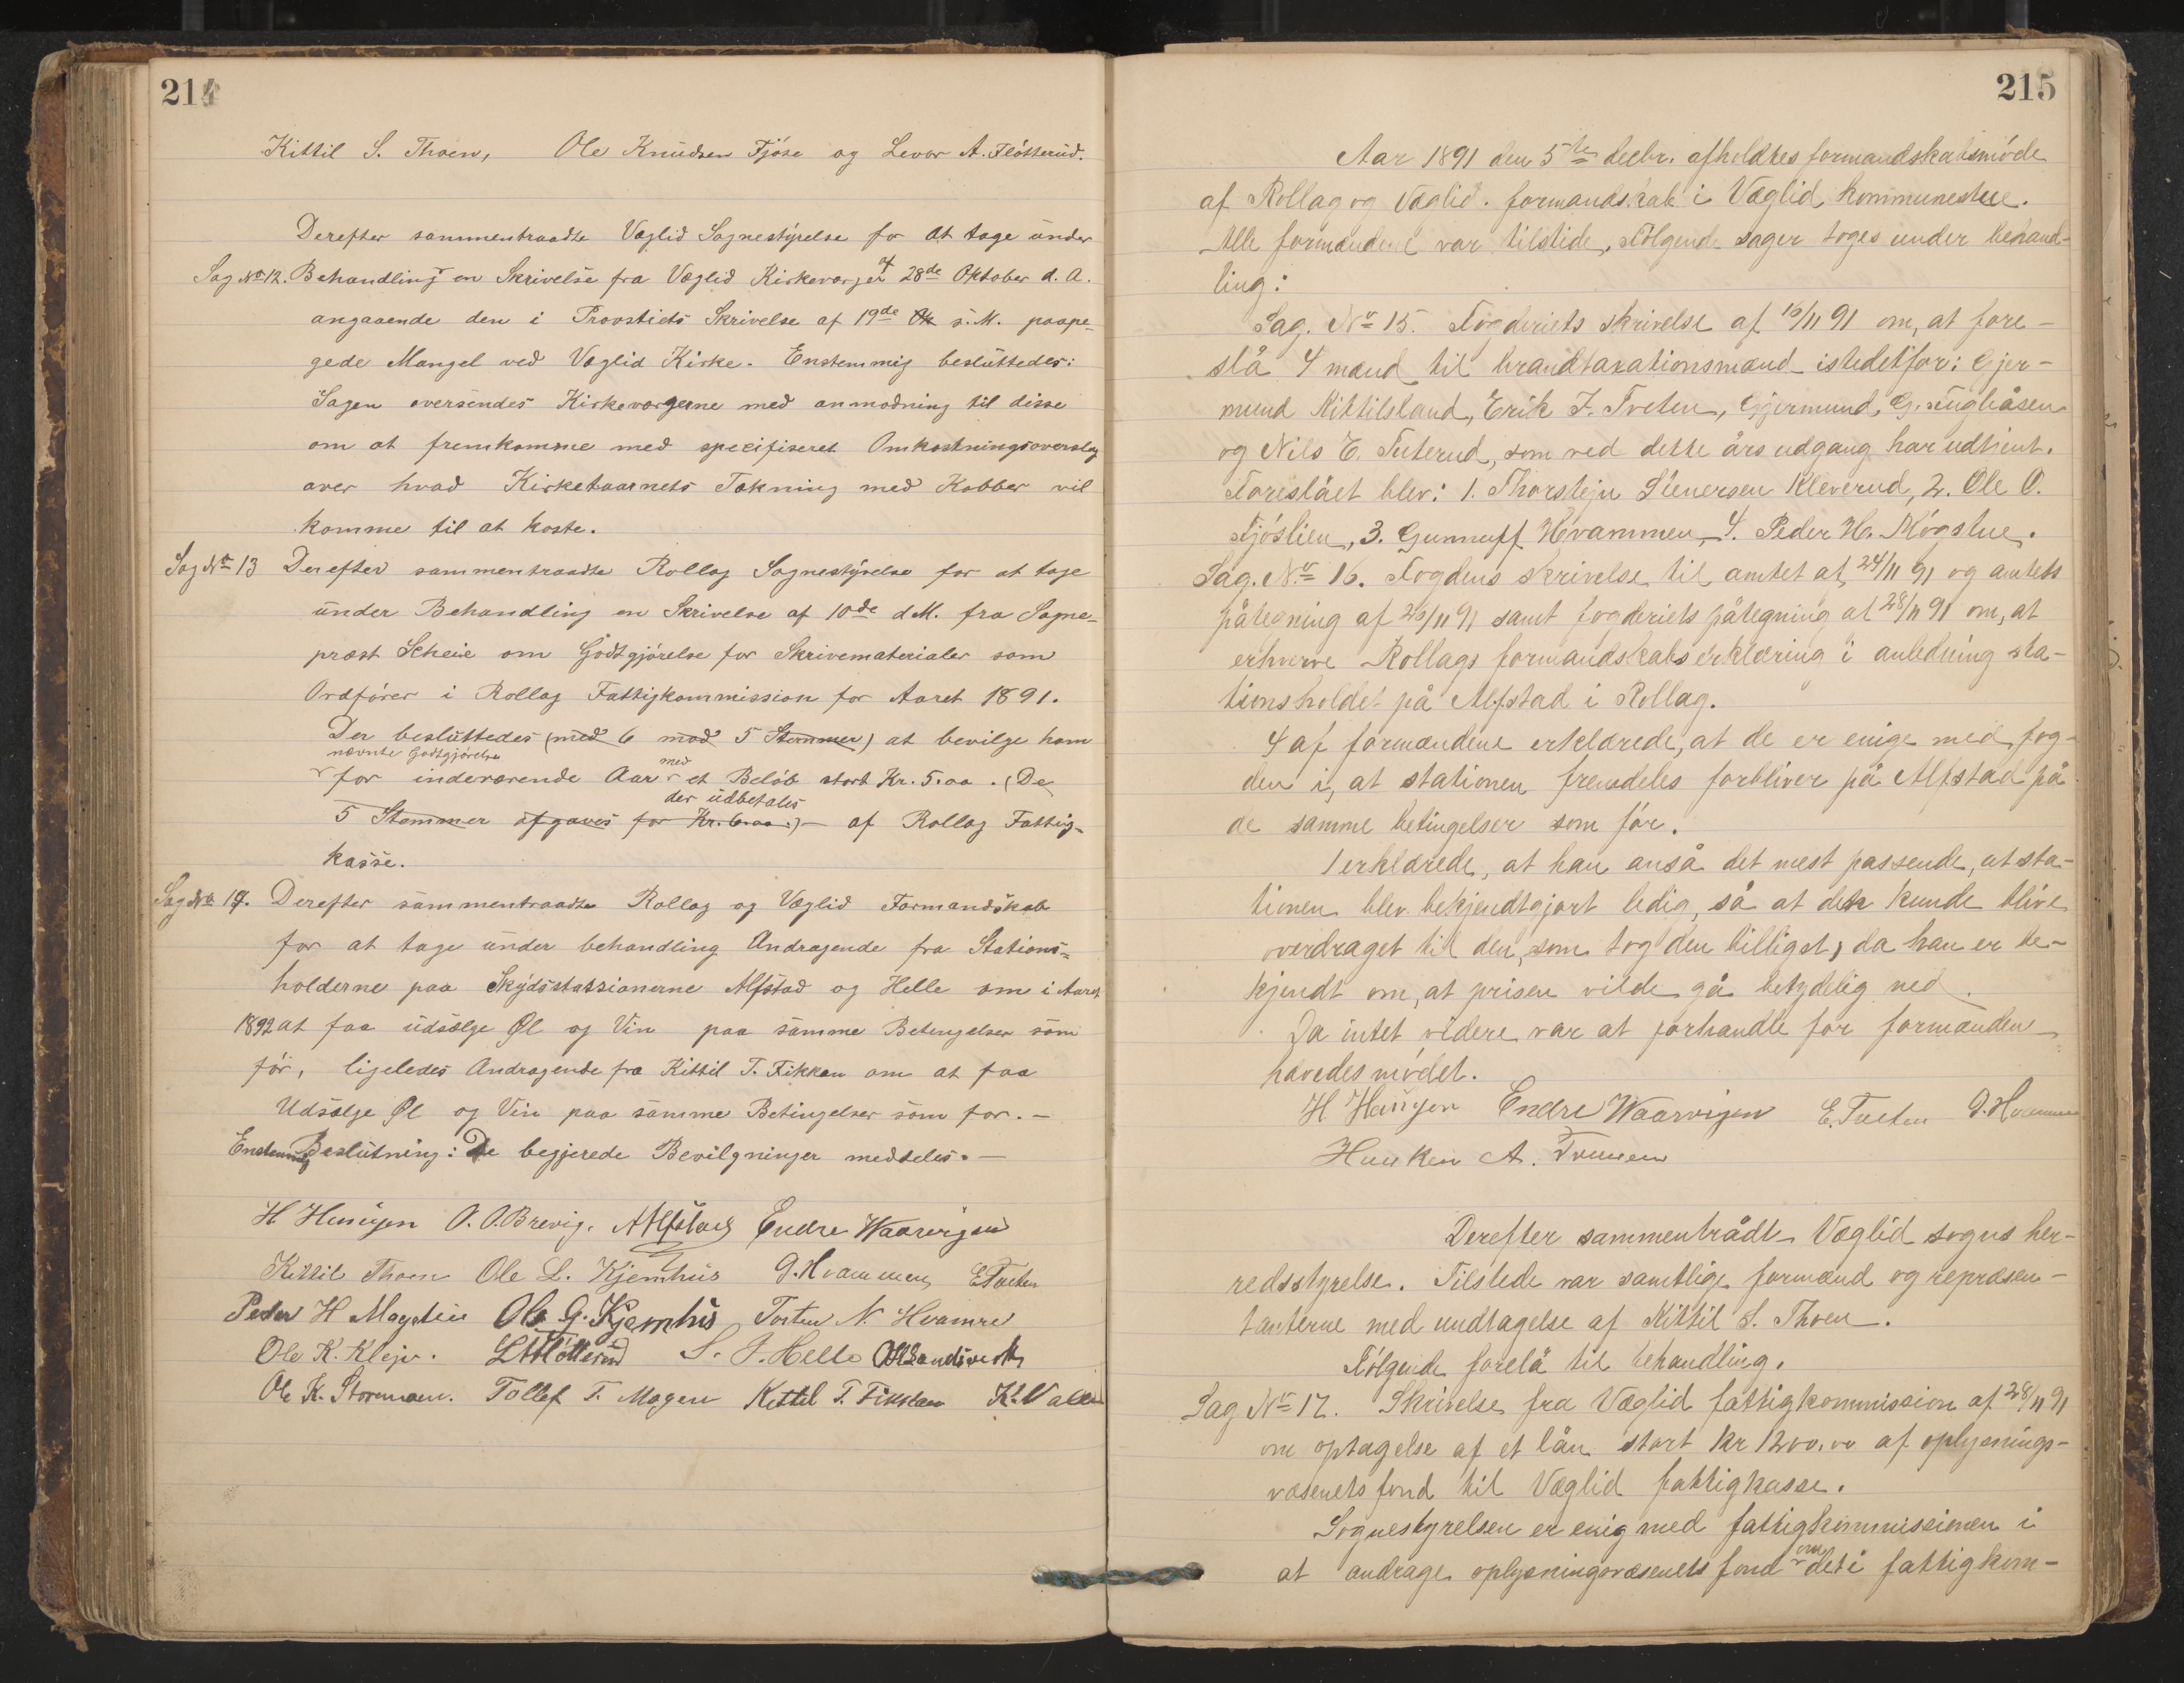 214
Kittil S. Thoen, Ole Knudsen Fjøse og Levor A. Fløtterud.
Derefter sammentraadte Væglid Sognestyrelse for at tage under
Sag No 12. Behandling en Skrivelse fra Væglid Kirkeværger af 28de Oktober d. A.
angaaende den i Provstiets Skrivelse af 19de s. M. paape-
gede Mangel ved Væglid Kirke. Enstemmig besluttedes:
Sagen oversendes Kirkeværgerne med anmodning til disse
om at fremkomme med specifiseret Omkostningsoverslag
over hvad Kirketaarnets Tækning med Kobber vil
komme til at koste.
Sag No 13 Derefter sammentraadte Rollag Sognestyrelse for at tage
under Behandling en Skrivelse af 10de d.M. fra Sogne-
præst Scheie om Godtgjørelse for Skrivematerialer som
Ordfører i Rollag Fattigkommission for Aaret 1891.
Der besluttedes (med 6 mod 5 Stemmer) at bevilge ham
nævnte Godtgjørelse
for indeværende Aar med et Beløb stort Kr. 5.00. (De
der udbetales
5 Stemmer afgaves for Kr. 6.00.) — af Rollag Fattig-
kasse.
Sag No 14. Derefter sammentraadte Rollag og Væglid Formandskab
for at tage under behandling Andragende fra Stations-
holderne paa Skydsstatsionerne Alfstad og Helle om i Aaret
1892 at faa udsælge Øl og Vin paa samme Betingelser som
før, ligeledes Andragende fra Kittil T. Fikkan om at faa
Udsælge Øl og Vin paa samme Betingelser som før. —
Enstemmig Beslutning: De begjerede Bevilgninger meddeles. —
O. O. Brevig. Alfstad Endre Waarvigen
Kittil Thoen Ole L. Kjemhus G. Hvammen E. Tveten
Peder H Møgstue Ole G. Kjemhus Torsten N. Hvamre
Ole K. Klejv. L A Fløtterud S. J. Helle
Ole K. Tollef T. Mogen Kittil T. Fikkan
215
Aar 1891 den 5te decbr. afholdtes formandskabsmøde
af Rollag og Væglid formandskab i Væglid kommunestue.
Alle formændene var tilstede, Følgende sager toges under behand-
ling:
Sag. No 15. Fogderiets skrivelse af 16/11 91 om, at fore-
slå 4 mænd til brandtaxationsmænd istedetfor: Gjer-
mund Kittilsland, Erik J. Tveten, Gjermund G.
og Nils E. Tuterud, som ved dette års udgang har udtjent.
Foreslået blev: 1. Thorstejn Stenersen Kleverud, 2. Ole O.
Fjøslien, 3. Gunnuff Hvammen, 4. Peder H. Møgstue.
Sag. No 16. Fogdens skrivelse til amtet af 24/11 91 og amtets
påtegning af 26/11 91 samt fogderiets påtegning af 28/11 91 om, at
erhverve Rollags formandskabs erklæring i anledning sta-
tionsholdet på Alfstad i Rollag.
4 af formændene erklærede, at de er enige med fog-
den i, at stationen fremdeles forbliver på Alfstad på
de samme betingelser som før.
1 erklærede, at han anså det mest passende, at sta-
tionen blev bekjendtgjort ledig, så at den kunde blive
overdraget til den, som tog den billigst, da han er be-
kjendt om, at prisen vilde gå betydelig ned.
Da intet videre var at forhandle for formændene
hævedes mødet.
Endre Waarvigen E. Tveten G. Hvammen
A.
Derefter sammentrådte Væglid sogns her-
redsstyrelse. Tilstede var samtlige formænd og repræsen-
tanterne med undtagelse af Kittil S. Thoen.
Følgende forelå til behandling.
Sag No 17. Skrivelse fra Væglid fattigkommission af 28/11 91
om optagelse af et lån stort Kr 1200.00 af oplysnings-
væsenets fond til Væglid fattigkasse.
Sognestyrelsen er enig med fattigkommissionen i
at andrage oplysningsvæsenets fond om det i fattigkom-